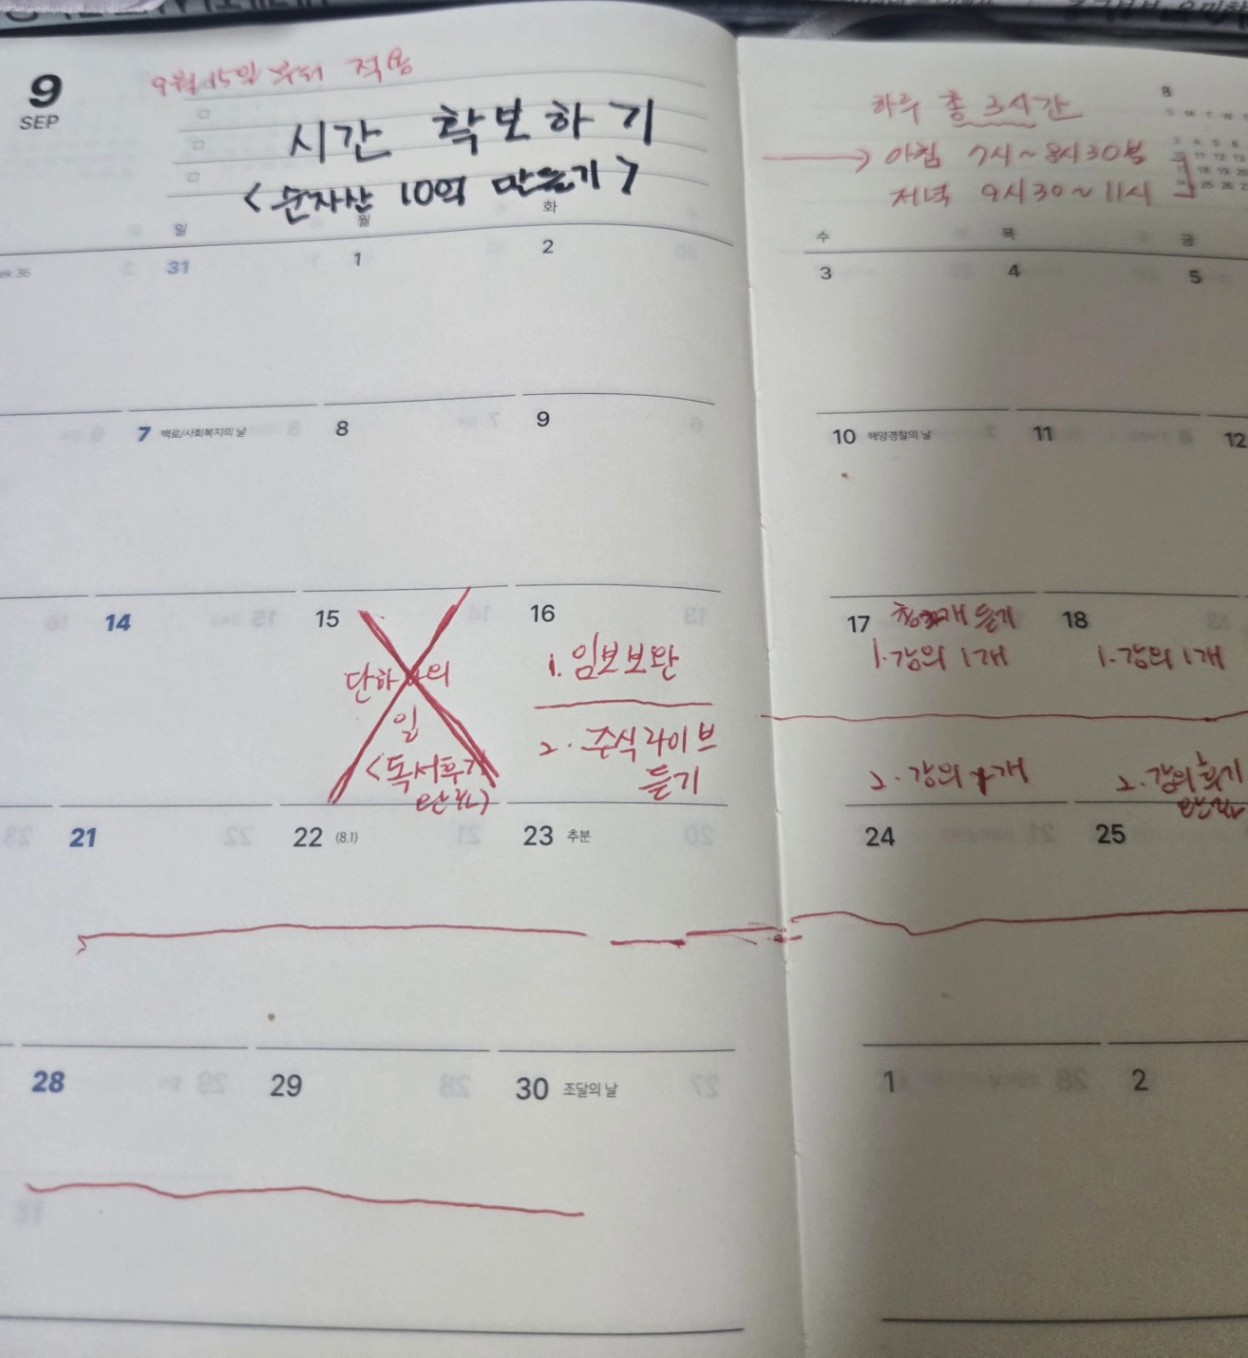 9
SEP
9월 15일 부터 적용
시간 확보하기
<순자산 10억 만들기>
하루 총 3시간
아침 7시~8시30분
저녁 9시30~11시
일 월 화 수 목 금
31 1 2 3 4 5
7 백로/사회복지의 날 8 9 10 해양경찰의 날 11 12
14 15 16 17 18
단하나의
일
<독서후기
1. 임보보완
2. 주식라이브
듣기
듣기
1. 강의 1개
2. 강의 1개
1. 강의 1개
2. 강의 후기
21 22 (8.1) 23 추분 24 25
28 29 30 조달의 날 1 2